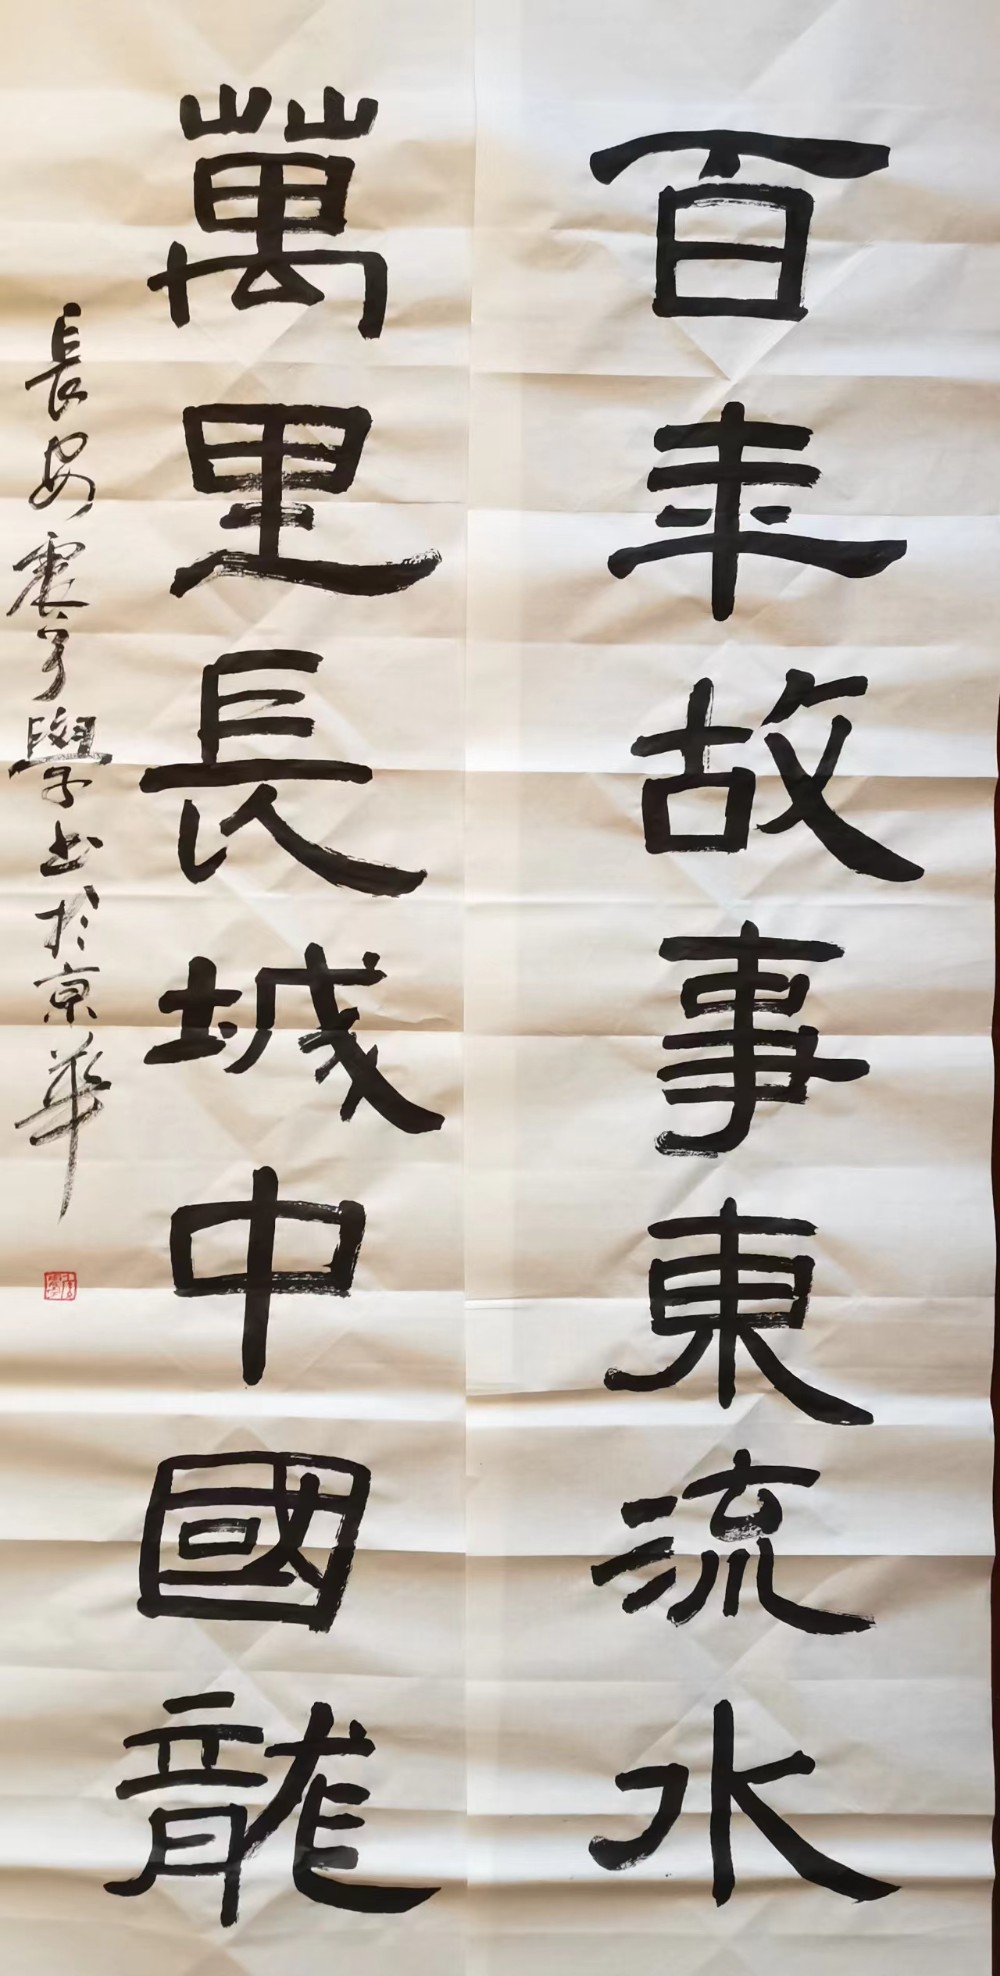 百年故事東流水
萬里長城中國龍
長安震亨學书於京華